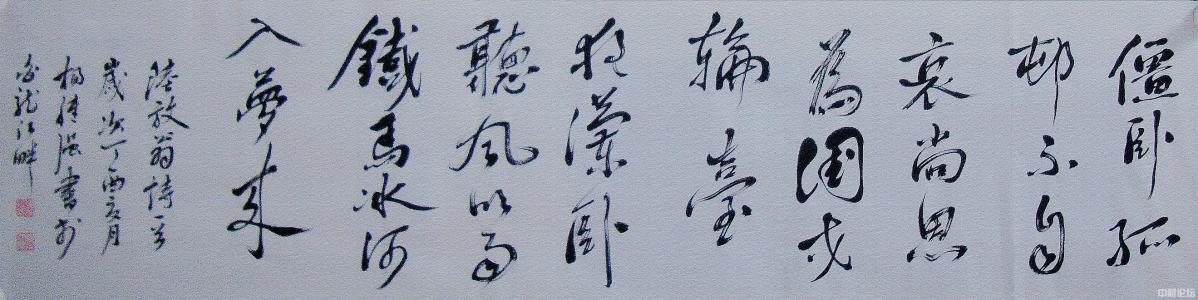 僵臥孤
邨不自
哀尚思
為國戍
輪臺
夜瀾臥
聽風吹雨
鐵馬冰河
入夢來
陸放翁詩
歲次丁酉月
楊書於
白龍江畔